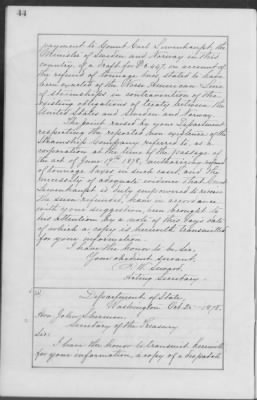 44
payment to Count Carl Lewenhaupt, the
Minister of Sweden and Norway in this
country, of a draft for $8.447, on account of
the refund of tonnage dues stated to have
been exacted of the Ross American Line
of steamships in contravention of the
existing obligations of treaty between the
United States and Sweden and Norway.
The point raised by your Department
respecting the reported non existence of the
Steamship Company referred to, as a
corporation at the time of the passage of
the act of June 19th 1878, authorizing refund
of tonnage taxes in such cases, and the
necessity of adequate evidence that Count
Lewenhaupt is duly empowered to receive
the sum refunded, have in accordance
with your suggestion, been brought to
his attention by a note of this day's date
of which a copy is herewith transmitted
for your information.
I have the honor to be, Sir,
Your obedient servant,
F. W. Seward,
Acting Secretary.
Department of State,
Washington Oct. 1878.
Hon. John Sherman,
Secretary of the Treasury
Sir:
I have the honor to transmit herewith
for your information, a copy of a despatch